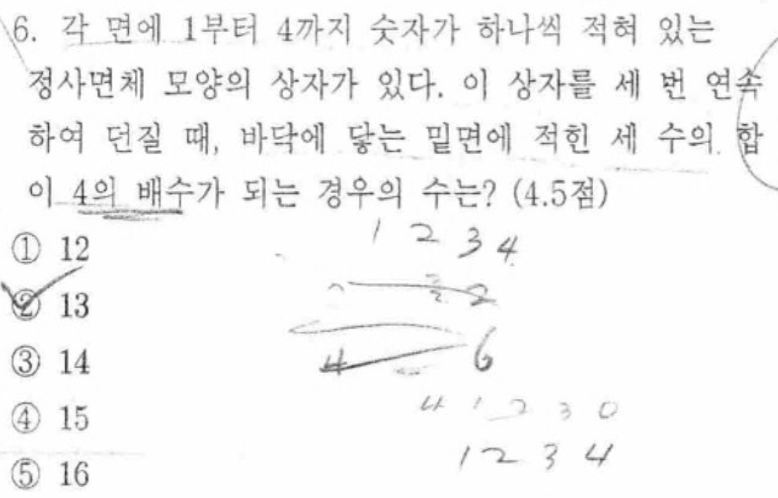 6. 각 면에 1부터 4까지 숫자가 하나씩 적혀 있는
정사면체 모양의 상자가 있다. 이 상자를 세 번 연속
하여 던질 때, 바닥에 닿는 밑면에 적힌 세 수의 합
이 4의 배수가 되는 경우의 수는? (4.5점)
① 12
1 2 3 4
② 13
2
③ 14
4 6
④ 15
4 1 2 3 0
1 2 3 4
⑤ 16